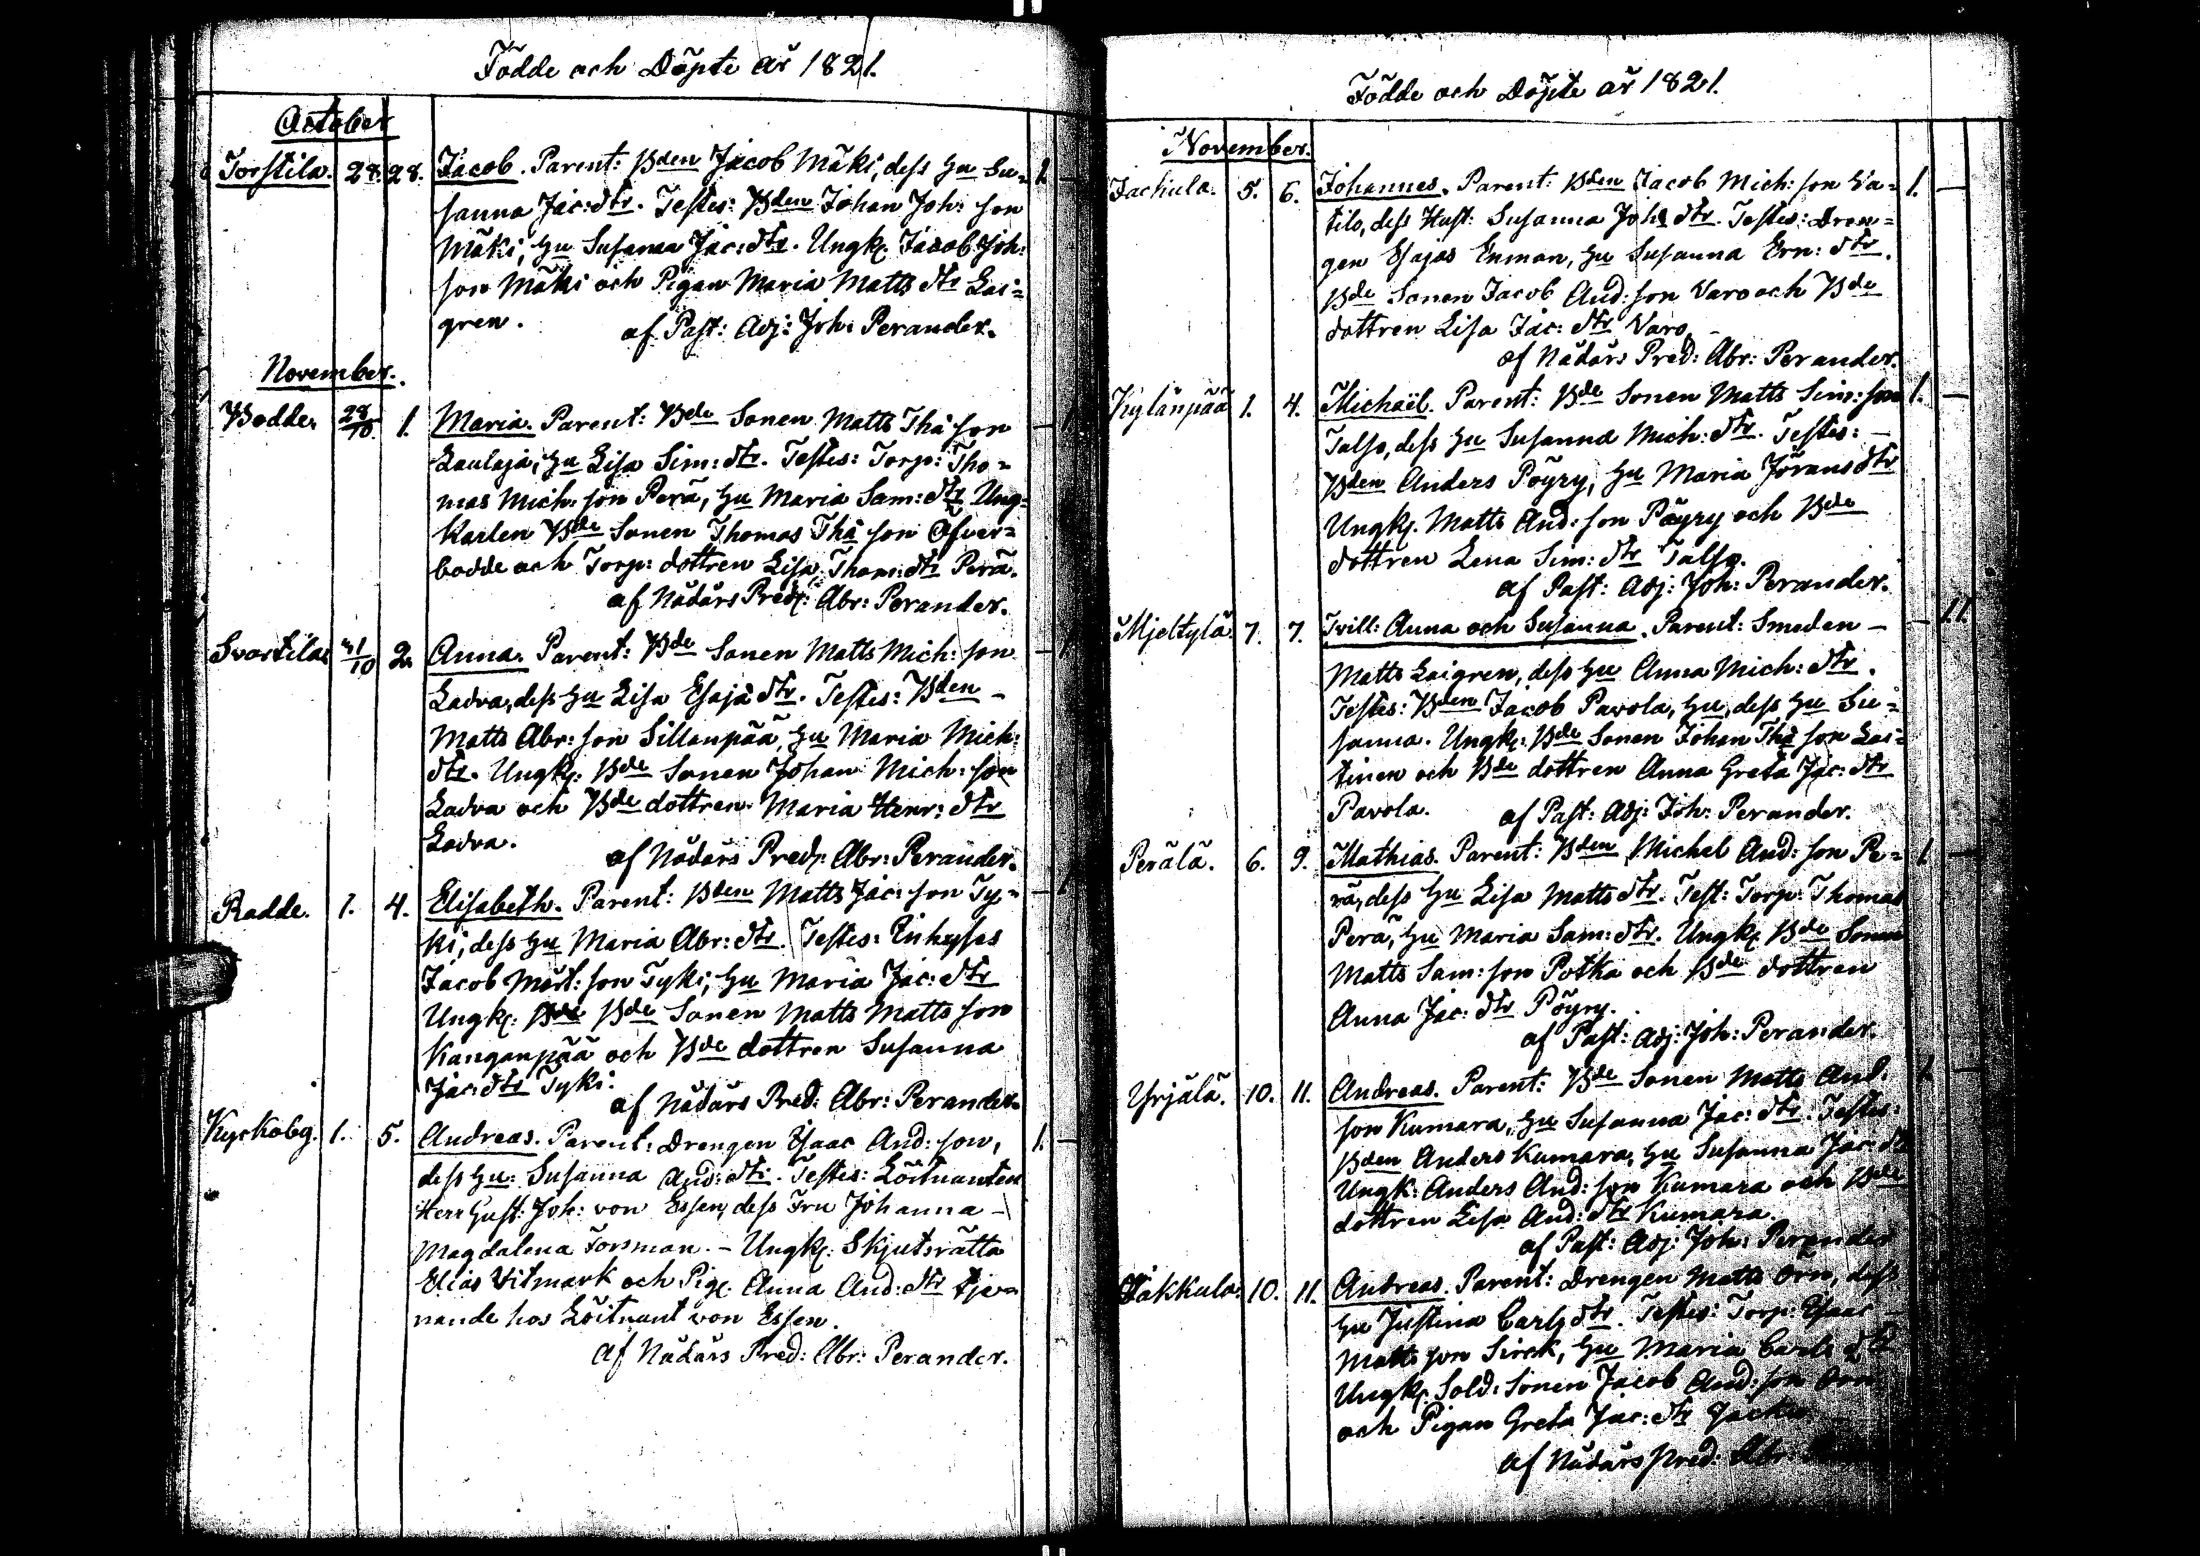 Födde och Döpte år 1821.
October
Torstila. 28. 28. Jacob. Parent: Bden Jacob Mäki, dess Hu Su= 1. —
sanna Jac: dtr. Testes: Bden Johan Joh: son
Mäki, Hu Susanna Jac: dtr. Ungk. Jacob Joh:
son Mäki och Pigan Maria Matts dtr Lai=
gren.
af Past: Adj: Joh: Perander.
November.
Bodde. 28/10. 1. Maria. Parent: Bde Sonen Matts Tho: son — 1.
Laulaja, Hu Lisa Sim: dtr. Testes: Torp: Tho=
mas Mich: son Perä, Hu Maria Sam: dtr Ung=
karlen Bde Sonen Thomas Tho: son Öfver=
bodde och Torp: dottren Lisa Thom: dtr Perä.
af Nådårs Pred: Abr: Perander.
Svartila 31/10 2. Anna. Parent: Bde Sonen Matts Mich: son — 1.
Ladva, dess Hu Lisa Esaja dtr. Testes: Bden —
Matts Abr: son Sillanpää, Hu Maria Mich:
dtr. Ungk: Bde Sonen Johan Mich: son
Ladva och Bde dottren Maria Henr: dtr
Ladva.
af Nådårs Pred: Abr: Perander.
Radde. 1. 4. Elisabeth. Parent: Bden Matts Jac: son Ty= — 1.
ki, dess Hu Maria Abr: dtr. Testes: Inhyses
Jacob Mårt: son Tyki, Hu Maria Jac: dtr
Ungk: Bde Bde Sonen Matts Matts son
Kanganpää och Bde dottren Susanna
Jac: dtr Tyki.
af Nådårs Pred: Abr: Perander.
Kyrkobg. 1. 5. Andreas. Parent: Drengen Isaac And: son, 1. —
dess Hu: Susanna And: dtr. Testes: Löitnanten
Herr Gust: Joh: von Essen, dess Fru Johanna —
Magdalena Forsman. — Ungk: Skjutsrätta
Elias Vitmark och Pig. Anna And: dtr tje=
nande hos Löitnant von Essen.
af Nådårs Pred: Abr: Perander.
Födde och Döpte år 1821.
November.
Jackula. 5. 6. Johannes. Parent: Bden Jacob Mich: son Va= 1. —
tilo, dess Hust: Susanna Joh: dtr. Testes: Dren=
gen Esajas Enman, Hu Susanna Ern: dtr.
Bde Sonen Jacob And: son Varo och Bde
dottren Lisa Jac: dtr Varo. —
af Nådårs Pred: Abr: Perander.
Kylänpää 1. 4. Michaël. Parent: Bde Sonen Matts Sim: son 1. —
Talso, dess Hu Susanna Mich: dtr. Testes: —
Bden Anders Pöyry, Hu Maria Jörans dtr
Ungk. Matts And: son Pöyry och Bde
dottren Lena Sim: dtr Talso.
af Past: Adj: Joh: Perander.
Mjeltylä. 7. 7. Tvill: Anna och Susanna. Parent: Smeden — — 1.1.
Matts Laigren, dess Hu Anna Mich: dtr.
Testes: Bden Jacob Pavola, Hu, dess Hu Su=
sanna. Ungk: Bde Sonen Johan Tho: son Lai=
tinen och Bde dottren Anna Greta Jac: dtr
Pavola.
af Past: Adj: Joh: Perander.
Perälä. 6. 9. Mathias. Parent: Bden Michel And: son Pe= 1. —
rä, dess Hu Lisa Matts dtr. Test: Torp: Thomas
Perä, Hu Maria Sam: dtr. Ungk. Bde Sonen
Matts Sam: son Potka och Bde dottren
Anna Jac: dtr Pöyry.
af Past: Adj: Joh: Perander.
Yrjälä. 10. 11. Andreas. Parent: Bde Sonen Matts And: 1. —
son Kumara, Hu Susanna Jac: dtr. Testes:
Bden Anders Kumara, Hu Susanna Jac: dtr
Ungk: Anders And: son Kumara och Bde
dottren Lisa And: dtr Kumara.
af Past: Adj: Joh: Perander
10. 11. Andreas. Parent: Drengen Matts Örn, dess
Hu Justina Carls dtr. Testes: Torp: Isaac —
Matts son Sirek, Hu Maria Carls dtr
Ungk. Sold: Sonen Jacob And: son Örn
och Pigan Greta Jac: dtr
af Nådårs Pred: Abr: